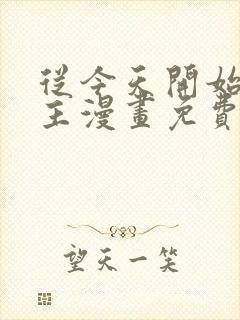 從今天開始
主漫畫免費
望天一笑